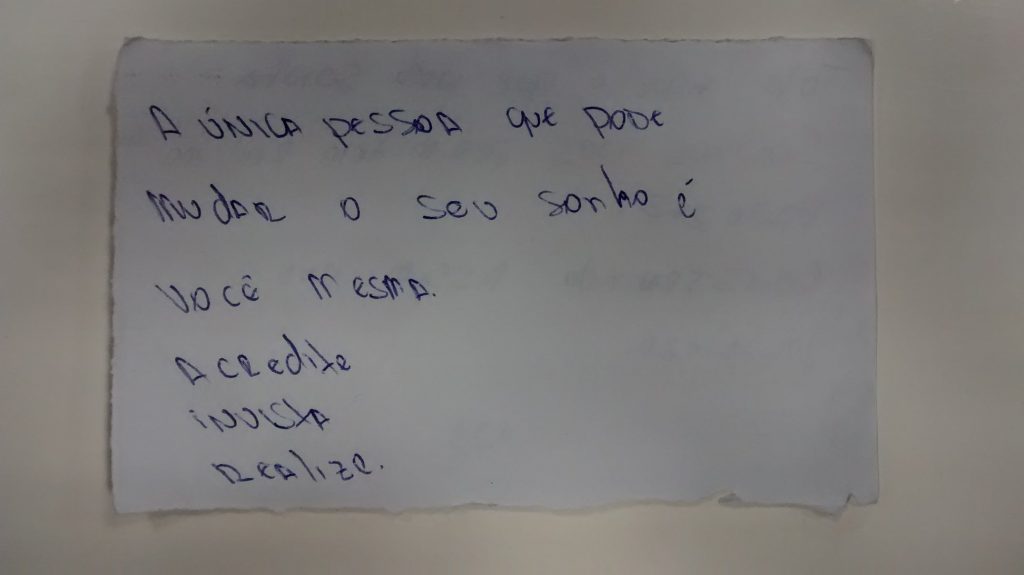 A única pessoa que pode
mudar o seu sonho é
você mesma.
Acredite
invista
realize.